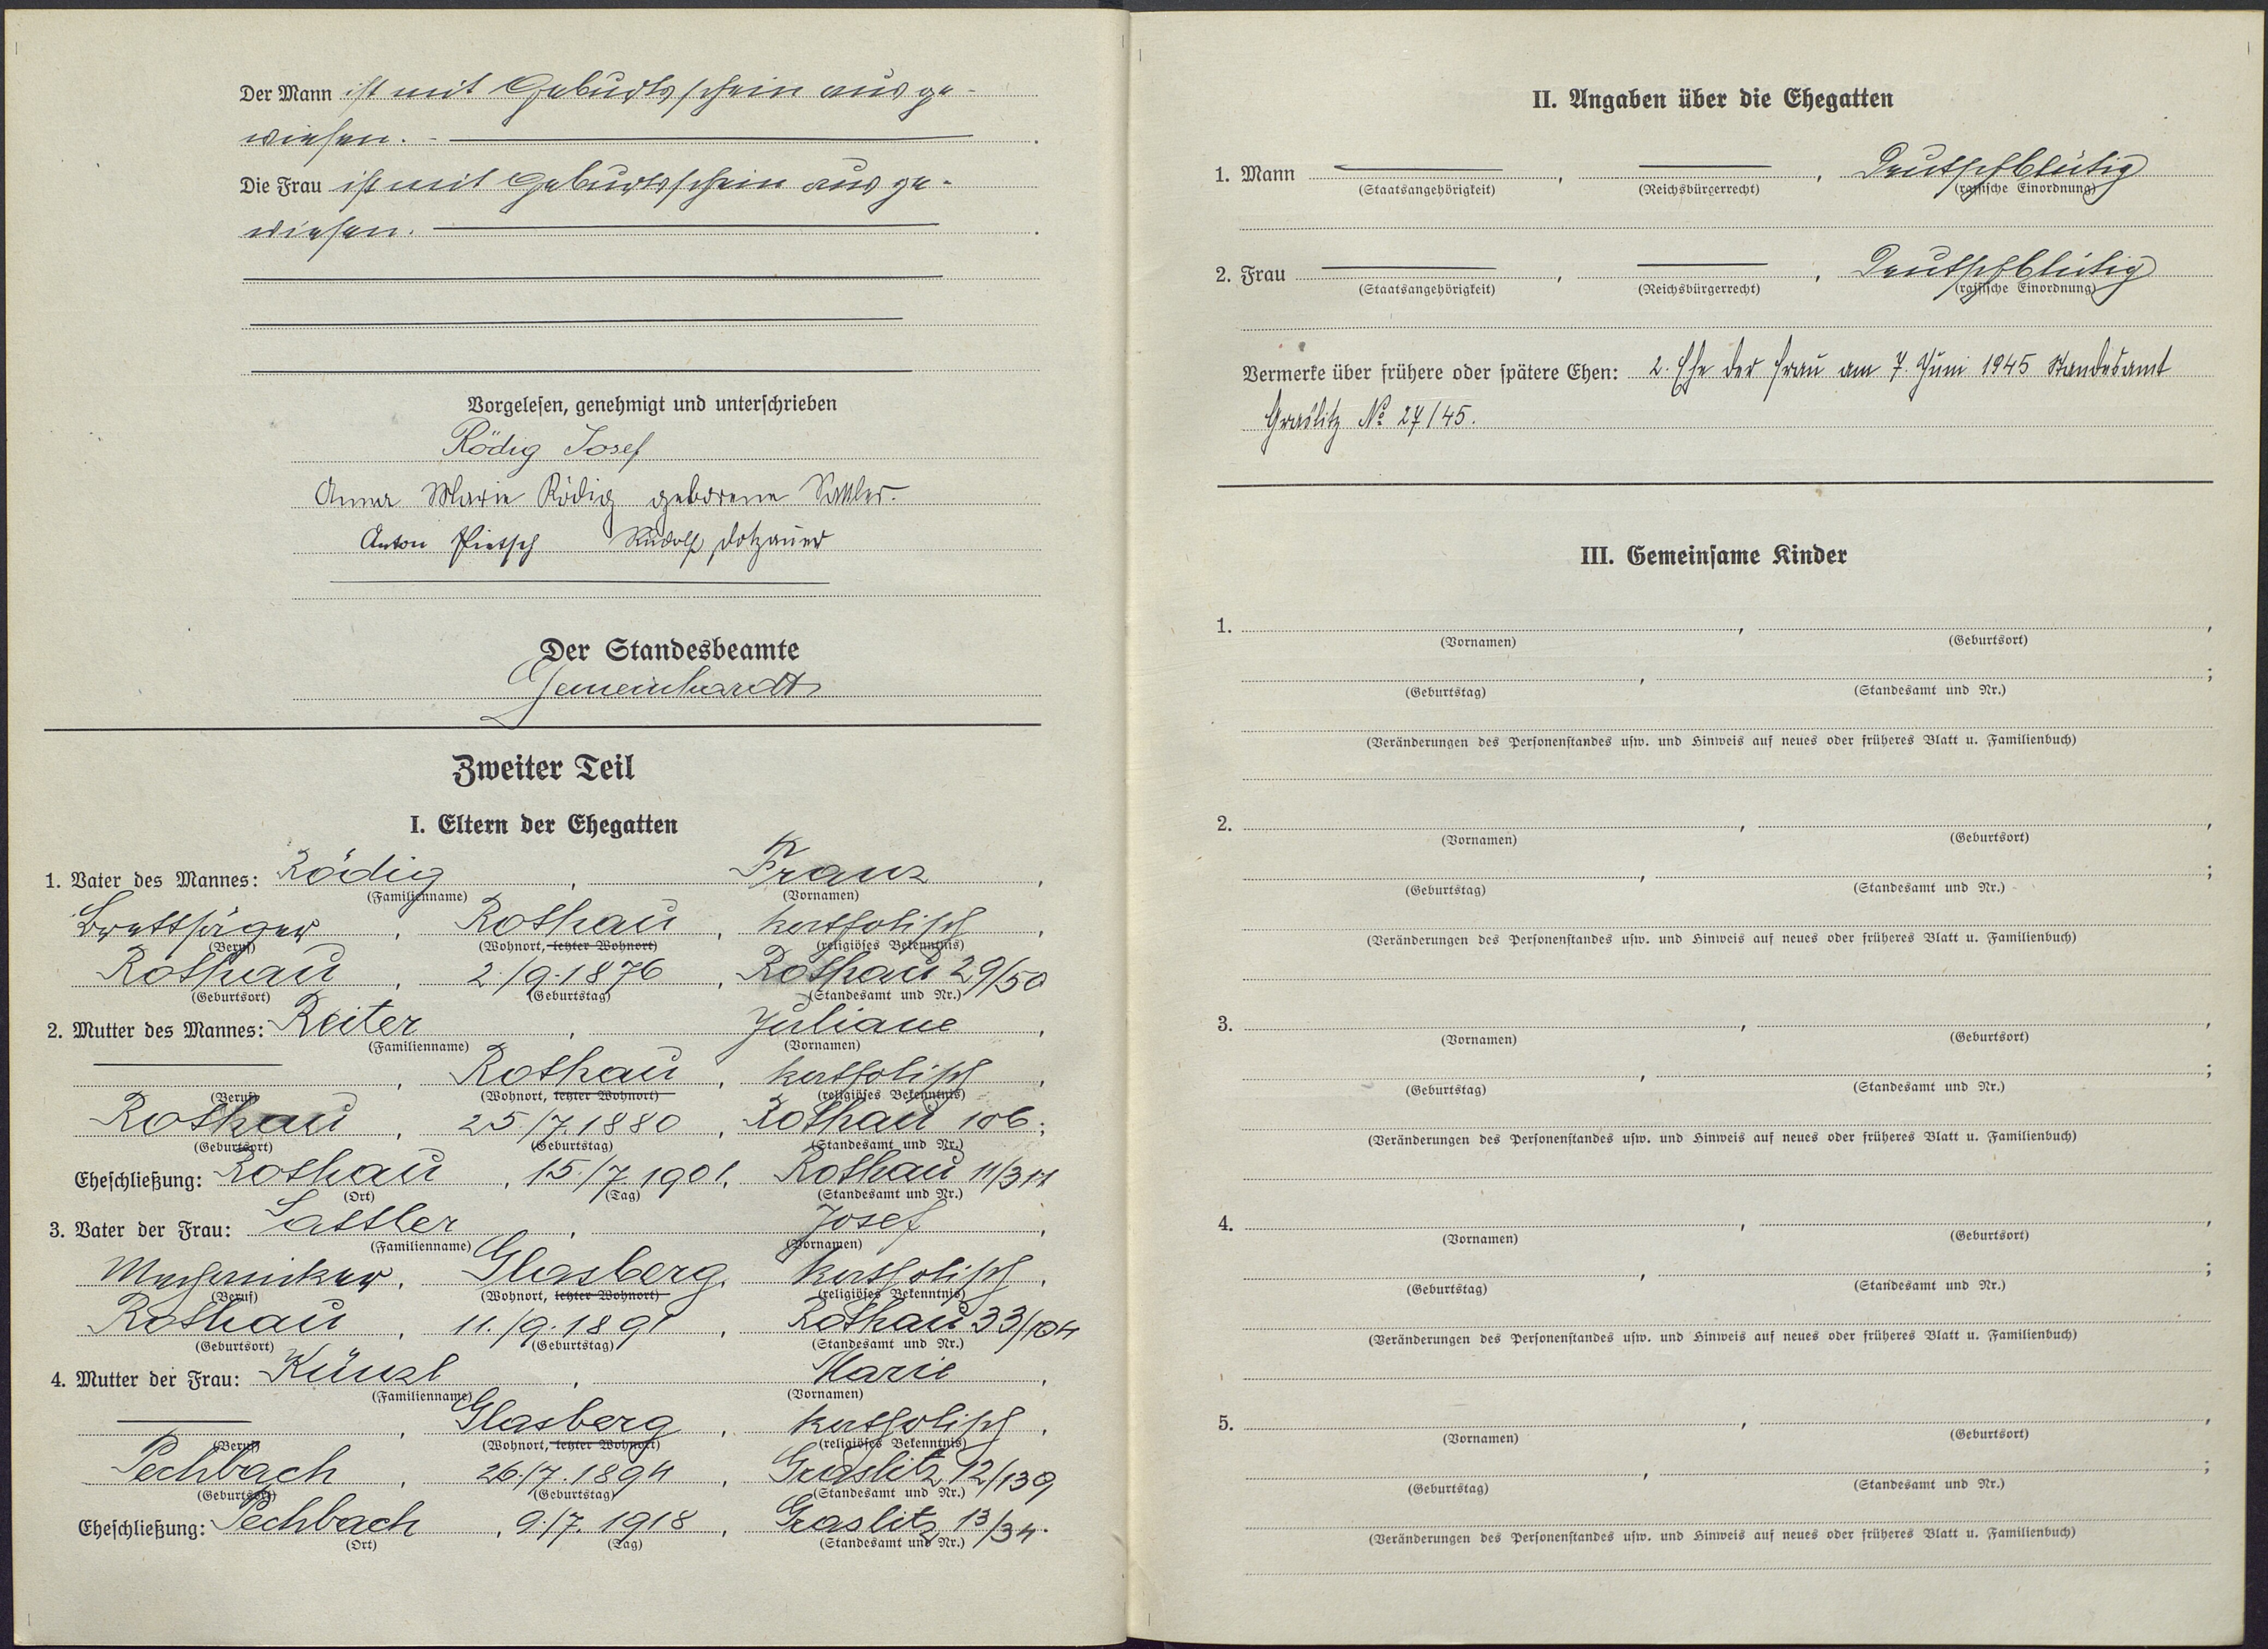 Der Mann ist mit Geburtsschein ausge-
wiesen. -
Die Frau ist mit Geburtsschein ausge-
wiesen.
Vorgelesen, genehmigt und unterschrieben
Rödig Josef
Anna Marie Rödig geborene Sattler.
Anton Pietsch Rudolf Dotzauer
Der Standesbeamte
Gemeinhardt
Zweiter Teil
I. Eltern der Ehegatten
1. Vater des Mannes: Rödig, Franz,
(Familienname) (Vornamen)
Brettsäger, Rothau, katholisch,
(Beruf) (Wohnort, letzter Wohnort) (religiöses Bekenntnis)
Rothau, 2./9.1876, Rothau 29/50
(Geburtsort) (Geburtstag) (Standesamt und Nr.)
2. Mutter des Mannes: Reiter, Juliane,
(Familienname) (Vornamen)
, Rothau, katholisch,
(Beruf) (Wohnort, letzter Wohnort) (religiöses Bekenntnis)
Rothau, 25./7.1880, Rothau 106;
(Geburtsort) (Geburtstag) (Standesamt und Nr.)
Eheschließung: Rothau, 15./7.1901, Rothau
(Ort) (Tag) (Standesamt und Nr.)
3. Vater der Frau: Sattler, Josef,
(Familienname) (Vornamen)
Mechaniker, Glasberg, katholisch,
(Beruf) (Wohnort, letzter Wohnort) (religiöses Bekenntnis)
Rothau, 11./9.1891, Rothau 33/104
(Geburtsort) (Geburtstag) (Standesamt und Nr.)
4. Mutter der Frau: Künzl, Marie,
(Familienname) (Vornamen)
, Glasberg, katholisch,
(Beruf) (Wohnort, letzter Wohnort) (religiöses Bekenntnis)
Pechbach, 26./7.1894, Graslitz 12/139
(Geburtsort) (Geburtstag) (Standesamt und Nr.)
Eheschließung: Pechbach, 9./7.1918, Graslitz 13/34.
(Ort) (Tag) (Standesamt und Nr.)
II. Angaben über die Ehegatten
1. Mann , , Deutschblütig
(Staatsangehörigkeit) (Reichsbürgerrecht) (rassische Einordnung)
2. Frau , , Deutschblütig
(Staatsangehörigkeit) (Reichsbürgerrecht) (rassische Einordnung)
Vermerke über frühere oder spätere Ehen: 2. Ehe der Frau am 7. Juni 1945 Standesamt
Graslitz No 27/45.
III. Gemeinsame Kinder
1. , ,
(Vornamen) (Geburtsort)
, ;
(Geburtstag) (Standesamt und Nr.)
(Veränderungen des Personenstandes usw. und Hinweis auf neues oder früheres Blatt u. Familienbuch)
2. , ,
(Vornamen) (Geburtsort)
, ;
(Geburtstag) (Standesamt und Nr.)
(Veränderungen des Personenstandes usw. und Hinweis auf neues oder früheres Blatt u. Familienbuch)
3. , ,
(Vornamen) (Geburtsort)
, ;
(Geburtstag) (Standesamt und Nr.)
(Veränderungen des Personenstandes usw. und Hinweis auf neues oder früheres Blatt u. Familienbuch)
4. , ,
(Vornamen) (Geburtsort)
, ;
(Geburtstag) (Standesamt und Nr.)
(Veränderungen des Personenstandes usw. und Hinweis auf neues oder früheres Blatt u. Familienbuch)
5. , ,
(Vornamen) (Geburtsort)
, ;
(Geburtstag) (Standesamt und Nr.)
(Veränderungen des Personenstandes usw. und Hinweis auf neues oder früheres Blatt u. Familienbuch)